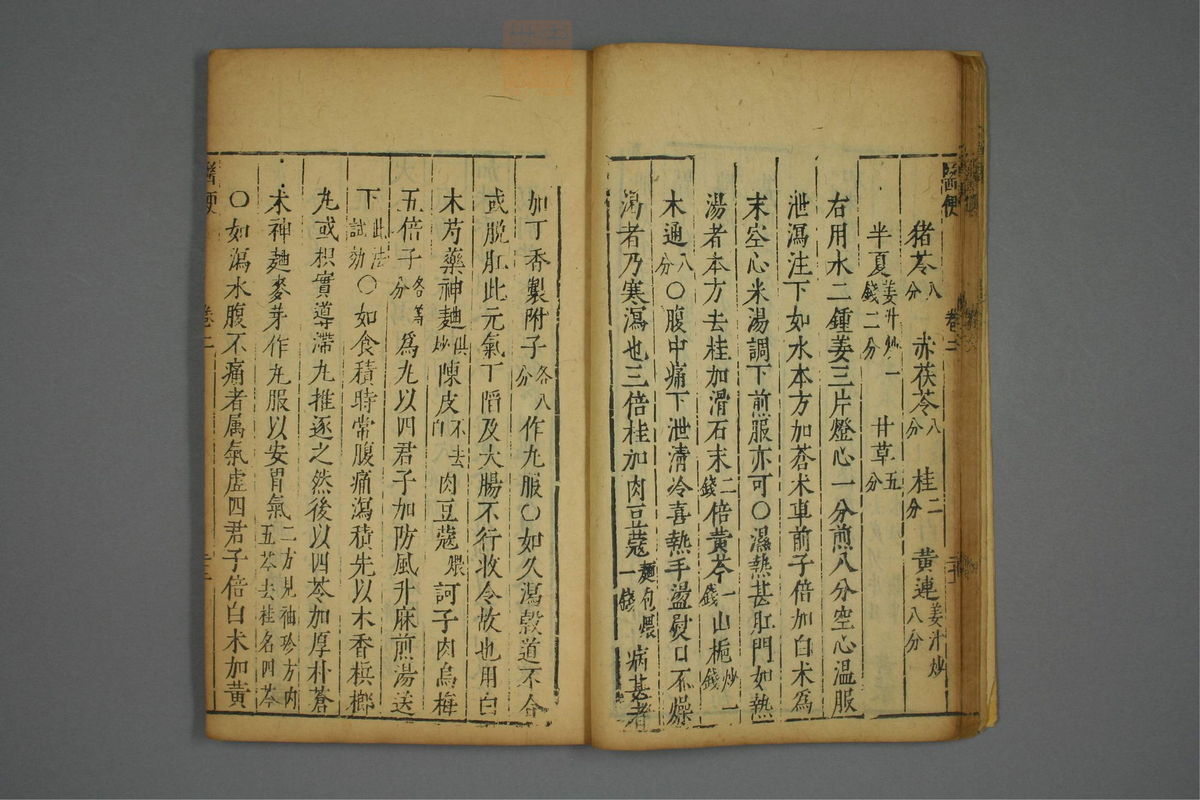 醫便 卷二
猪苓八分 赤茯苓八分 桂二分 黃連姜汁炒八分
半夏姜汁炒一錢二分 甘草五分
右用水二鍾姜三片燈心一分煎八分空心溫服
泄瀉注下如水本方加蒼朮車前子倍加白朮爲
末空心米湯調下煎服亦可〇濕熱甚肛門如熱
湯者本方去桂加滑石末二錢倍黃芩一錢山梔炒一錢
木通八分〇腹中痛下泄清冷喜熱手盪熨口不燥
渴者乃寒瀉也三倍桂加肉豆蔻麵包煨一錢病甚者
加丁香製附子各八分作丸服〇如久瀉穀道不合
或脫肛此元氣下陷及大腸不行收令故也用白
朮芍藥神麯俱炒陳皮不去白肉豆蔻煨訶子肉烏梅
五倍子各等分爲丸以四君子加防風升麻煎湯送
下此法試効〇如食積時常腹痛瀉積先以木香檳榔
丸或枳實導滯丸推逐之然後以四苓加厚朴蒼
朮神麯麥芽作丸服以安胃氣二方見袖珍方內五苓去桂名四苓
〇如瀉水腹不痛者属氣虛四君子倍白朮加黃
醫便 卷二